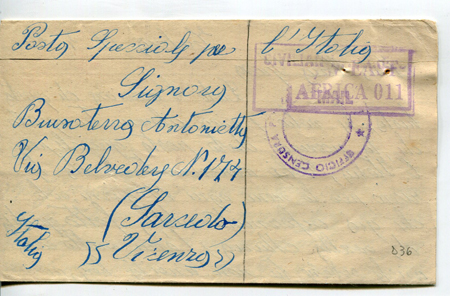 Posta Speciale per l'Italia
Signora
Brusaterra Antonietta
Via Belvedere N. 174
(Sarcedo)
Italia
"Vicenza"
CIVILIAN
AFRICA 011
MAIL
UFFICIO CENSORA
836